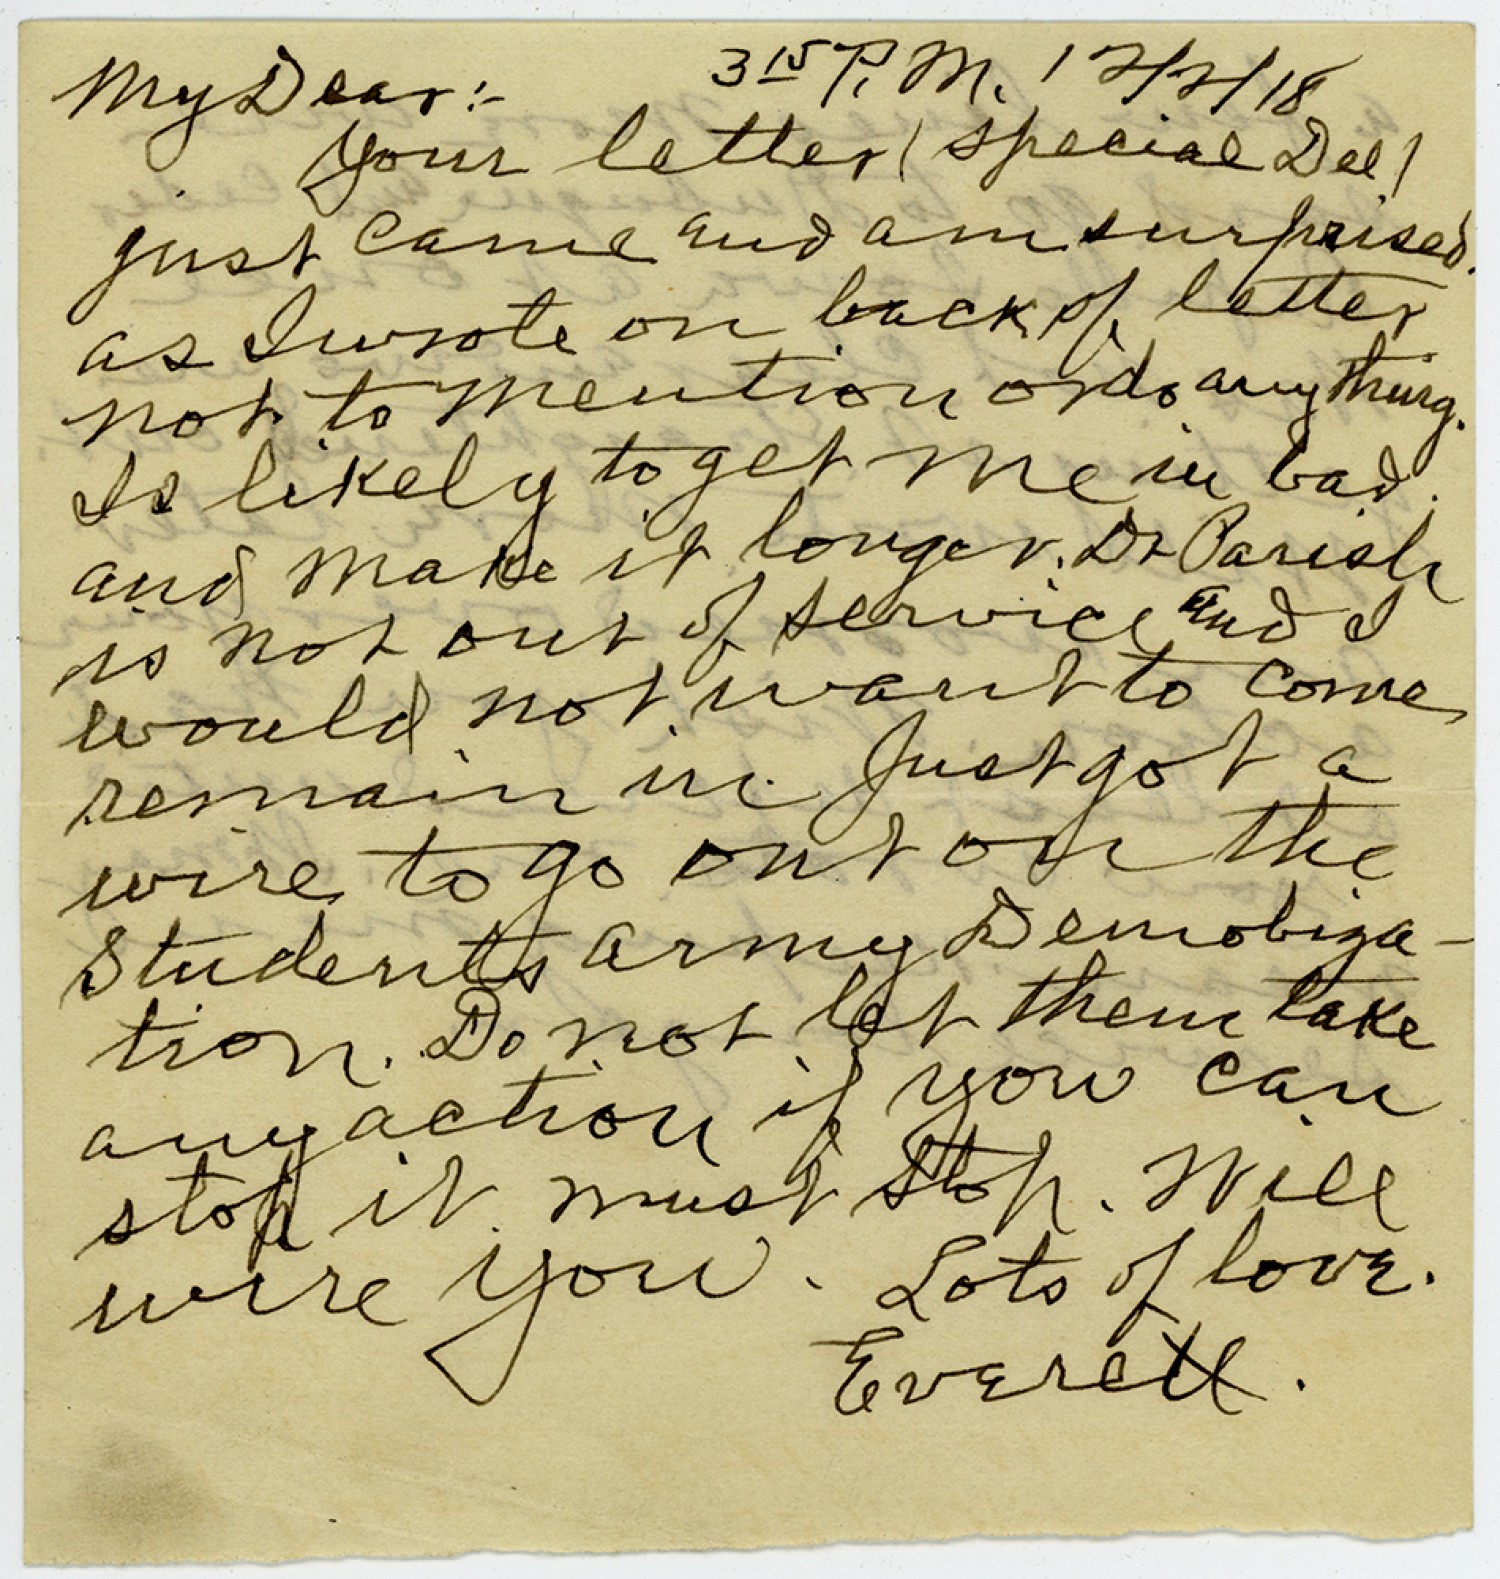 My Dear:- 3 15 P. M. 12/2/18
Your letter (special Del)
just came and am surprised.
as I wrote on back of letter
not to mention or do anything.
Is likely to get me in bad.
and make it longer. Dr Parish
is not out of service and I
would not want to come
remain in. Just got a
wire to go out on the
Students army Demobiza-
tion. Do not let them take
any action if you can
stop it. must stop. Will
wire you. Lots of love.
Everett.